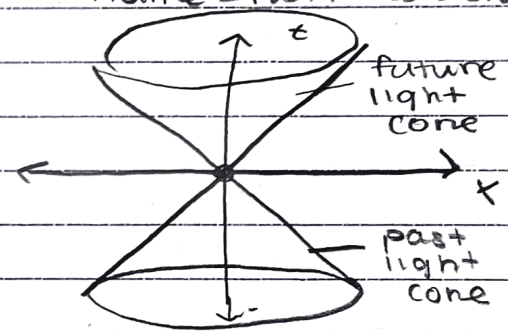 t
future
light
cone
x
past
light
cone